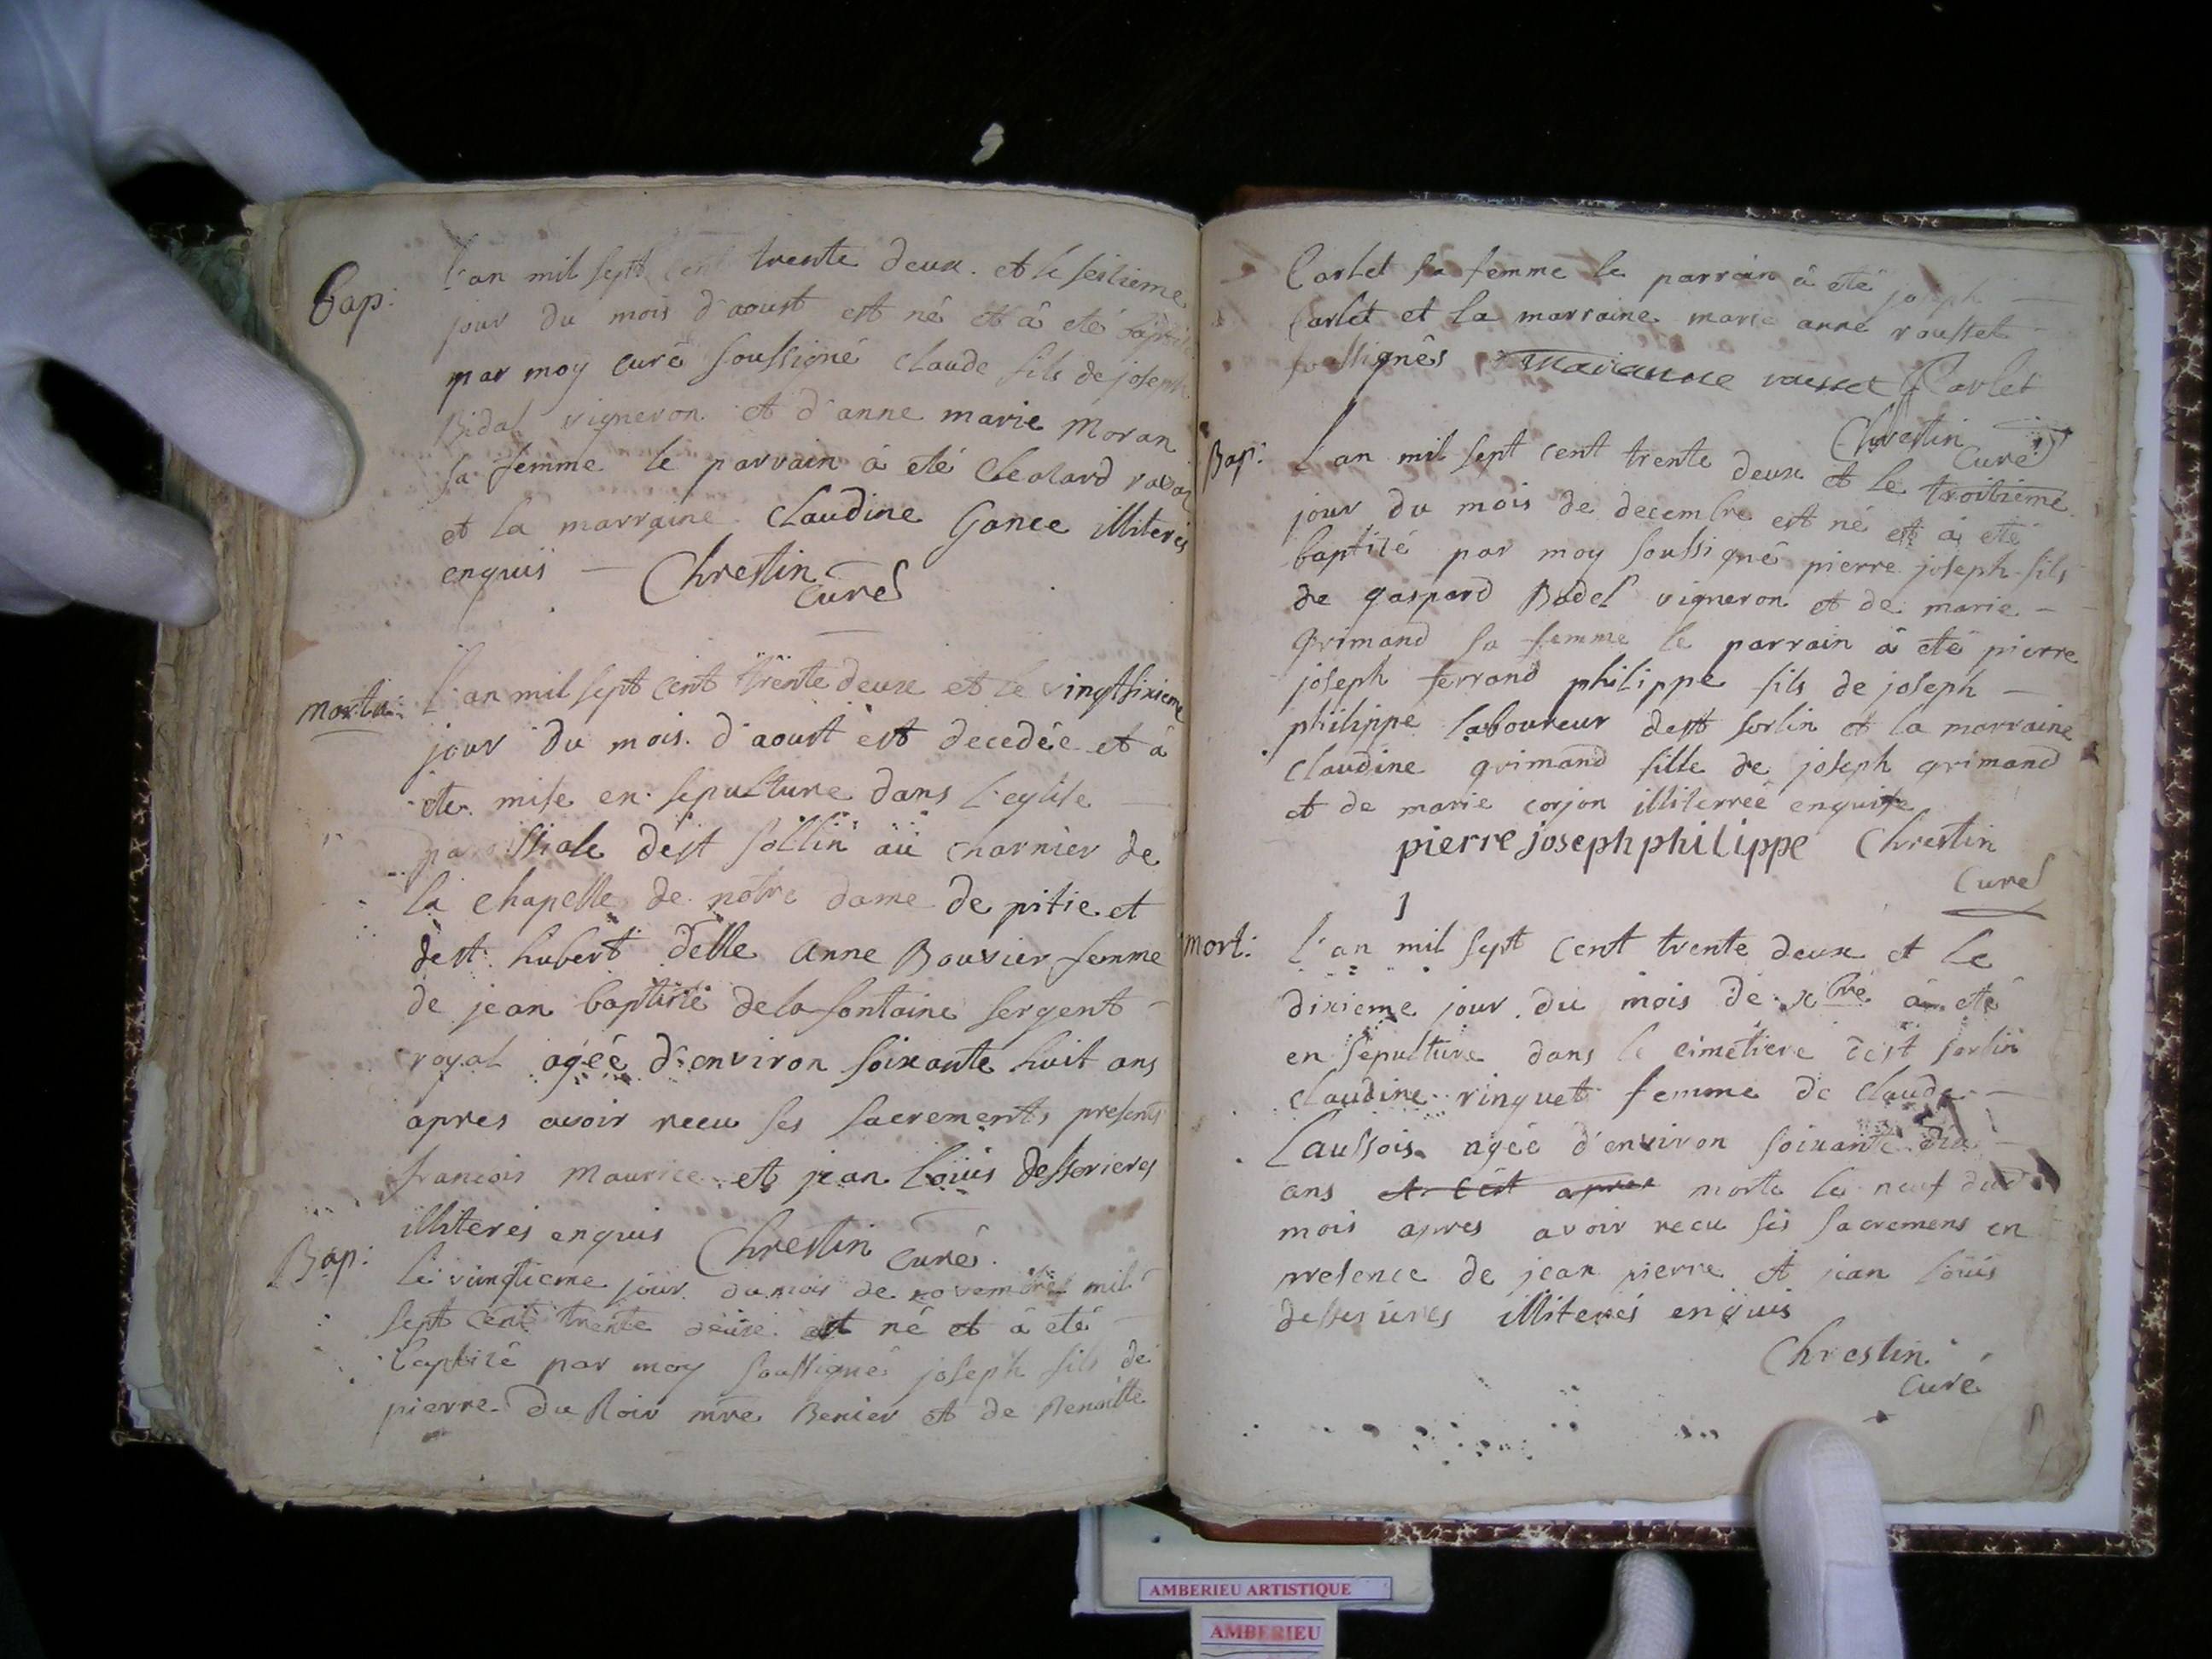 Bap:
l'an mil sept cent trente deux. et le seizieme
jour du mois d'aoust est né et à eté baptisé
par moy curé soussigné claude fils de joseph
Bidal vigneron et d'anne marie Moran
sa femme le parrain à eté Cleolard
et la marraine claudine Gonce illiterés
enquis — Chrestin
Curé
mortu:
l'an mil sept cent trente deux et le vingtsixieme
jour du mois d'aoust est decedée et à
ete mise en sepulture dans l'eglise
paroissiale dest sollin au charnier de
la chapelle de notre dame de pitie et
dest hubert delle anne Bouvier femme
de jean baptiste delafontaine sergent -
royal agéé d'environ soixante huit ans
apres avoir recu ses sacrements presents
francois Maurice et jean loüis desserieres
illiterés enquis Chrestin curé.
Bap:
le vingtieme jour du mois de novembre mil
sept cent trente deux est né et à eté
baptizé par moy soussigné joseph fils de
pierre Du Roir mre Benier et de Benoitte
Carlet sa femme le parrain à eté joseph —
Carlet et la marraine marie anne rousset -
soussignés marianne rousset J Carlet
Chrestin
Curé
Bap:
l'an mil sept cent trente deux et le troisieme
jour du mois de decembre est né et à eté
baptizé par moy soussigné pierre joseph fils
de gaspard Badel vigneron et de marie -
Grimand sa femme le parrain à eté pierre
joseph ferrand philippe fils de joseph —
philippe laboureur dest sorlin et la marraine
claudine grimand fille de joseph grimand
et de marie corjon illiterreé enquise
pierre joseph philippe Chrestin
Curé
1
mort:
l'an mil sept cent trente deux et le
dixieme jour du mois de xbre à eté
en sepulture dans le cimetiere dest sorlin
claudine rinquet femme de claude —
Laussois agée d'environ soixante dix —
ans et cest apres morte le neuf dud
mois apres avoir recu ses sacremens en
presence de jean pierre et jean loüis
desserieres illiterés enquis
Chrestin
Curé
AMBERIEU ARTISTIQUE
AMBERIEU